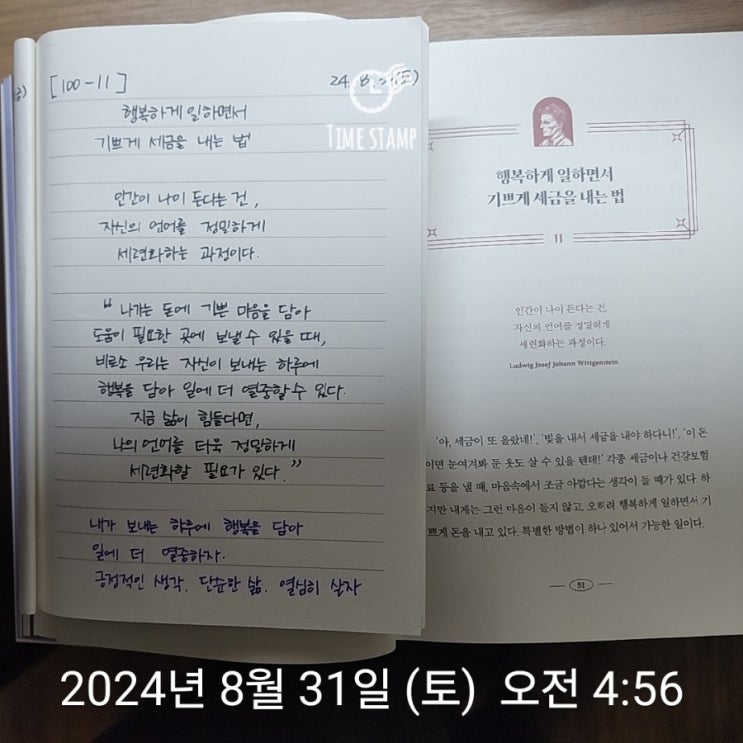 [100-11]
24. 8. 31(토)
TIME STAMP
행복하게 일하면서
기쁘게 세금을 내는 법
인간이 나이 든다는 건,
자신의 언어를 정밀하게
세련화하는 과정이다.
“ 나가는 돈에 기쁜 마음을 담아
도움이 필요한 곳에 보낼 수 있을 때,
비로소 우리는 자신이 보내는 하루에
행복을 담아 일에 더 열중할 수 있다.
지금 삶이 힘들다면,
나의 언어를 더욱 정밀하게
세련화할 필요가 있다.”
내가 보내는 하루에 행복을 담아
일에 더 열중하자.
긍정적인 생각. 단순한 삶. 열심히 살자
행복하게 일하면서
기쁘게 세금을 내는 법
11
인간이 나이 든다는 건,
자신의 언어를 정밀하게
세련화하는 과정이다.
Ludwig Josef Johann Wittgenstein
‘아, 세금이 또 올랐네!’, ‘빚을 내서 세금을 내야 하다니!’, ‘이 돈
이면 눈여겨봐 둔 옷도 살 수 있을 텐데!’ 각종 세금이나 건강보험
료 등을 낼 때, 마음속에서 조금 아깝다는 생각이 들 때가 있다. 하
지만 내게는 그런 마음이 들지 않고, 오히려 행복하게 일하면서 기
쁘게 돈을 내고 있다. 특별한 방법이 하나 있어서 가능한 일이다.
51
2024년 8월 31일 (토) 오전 4:56